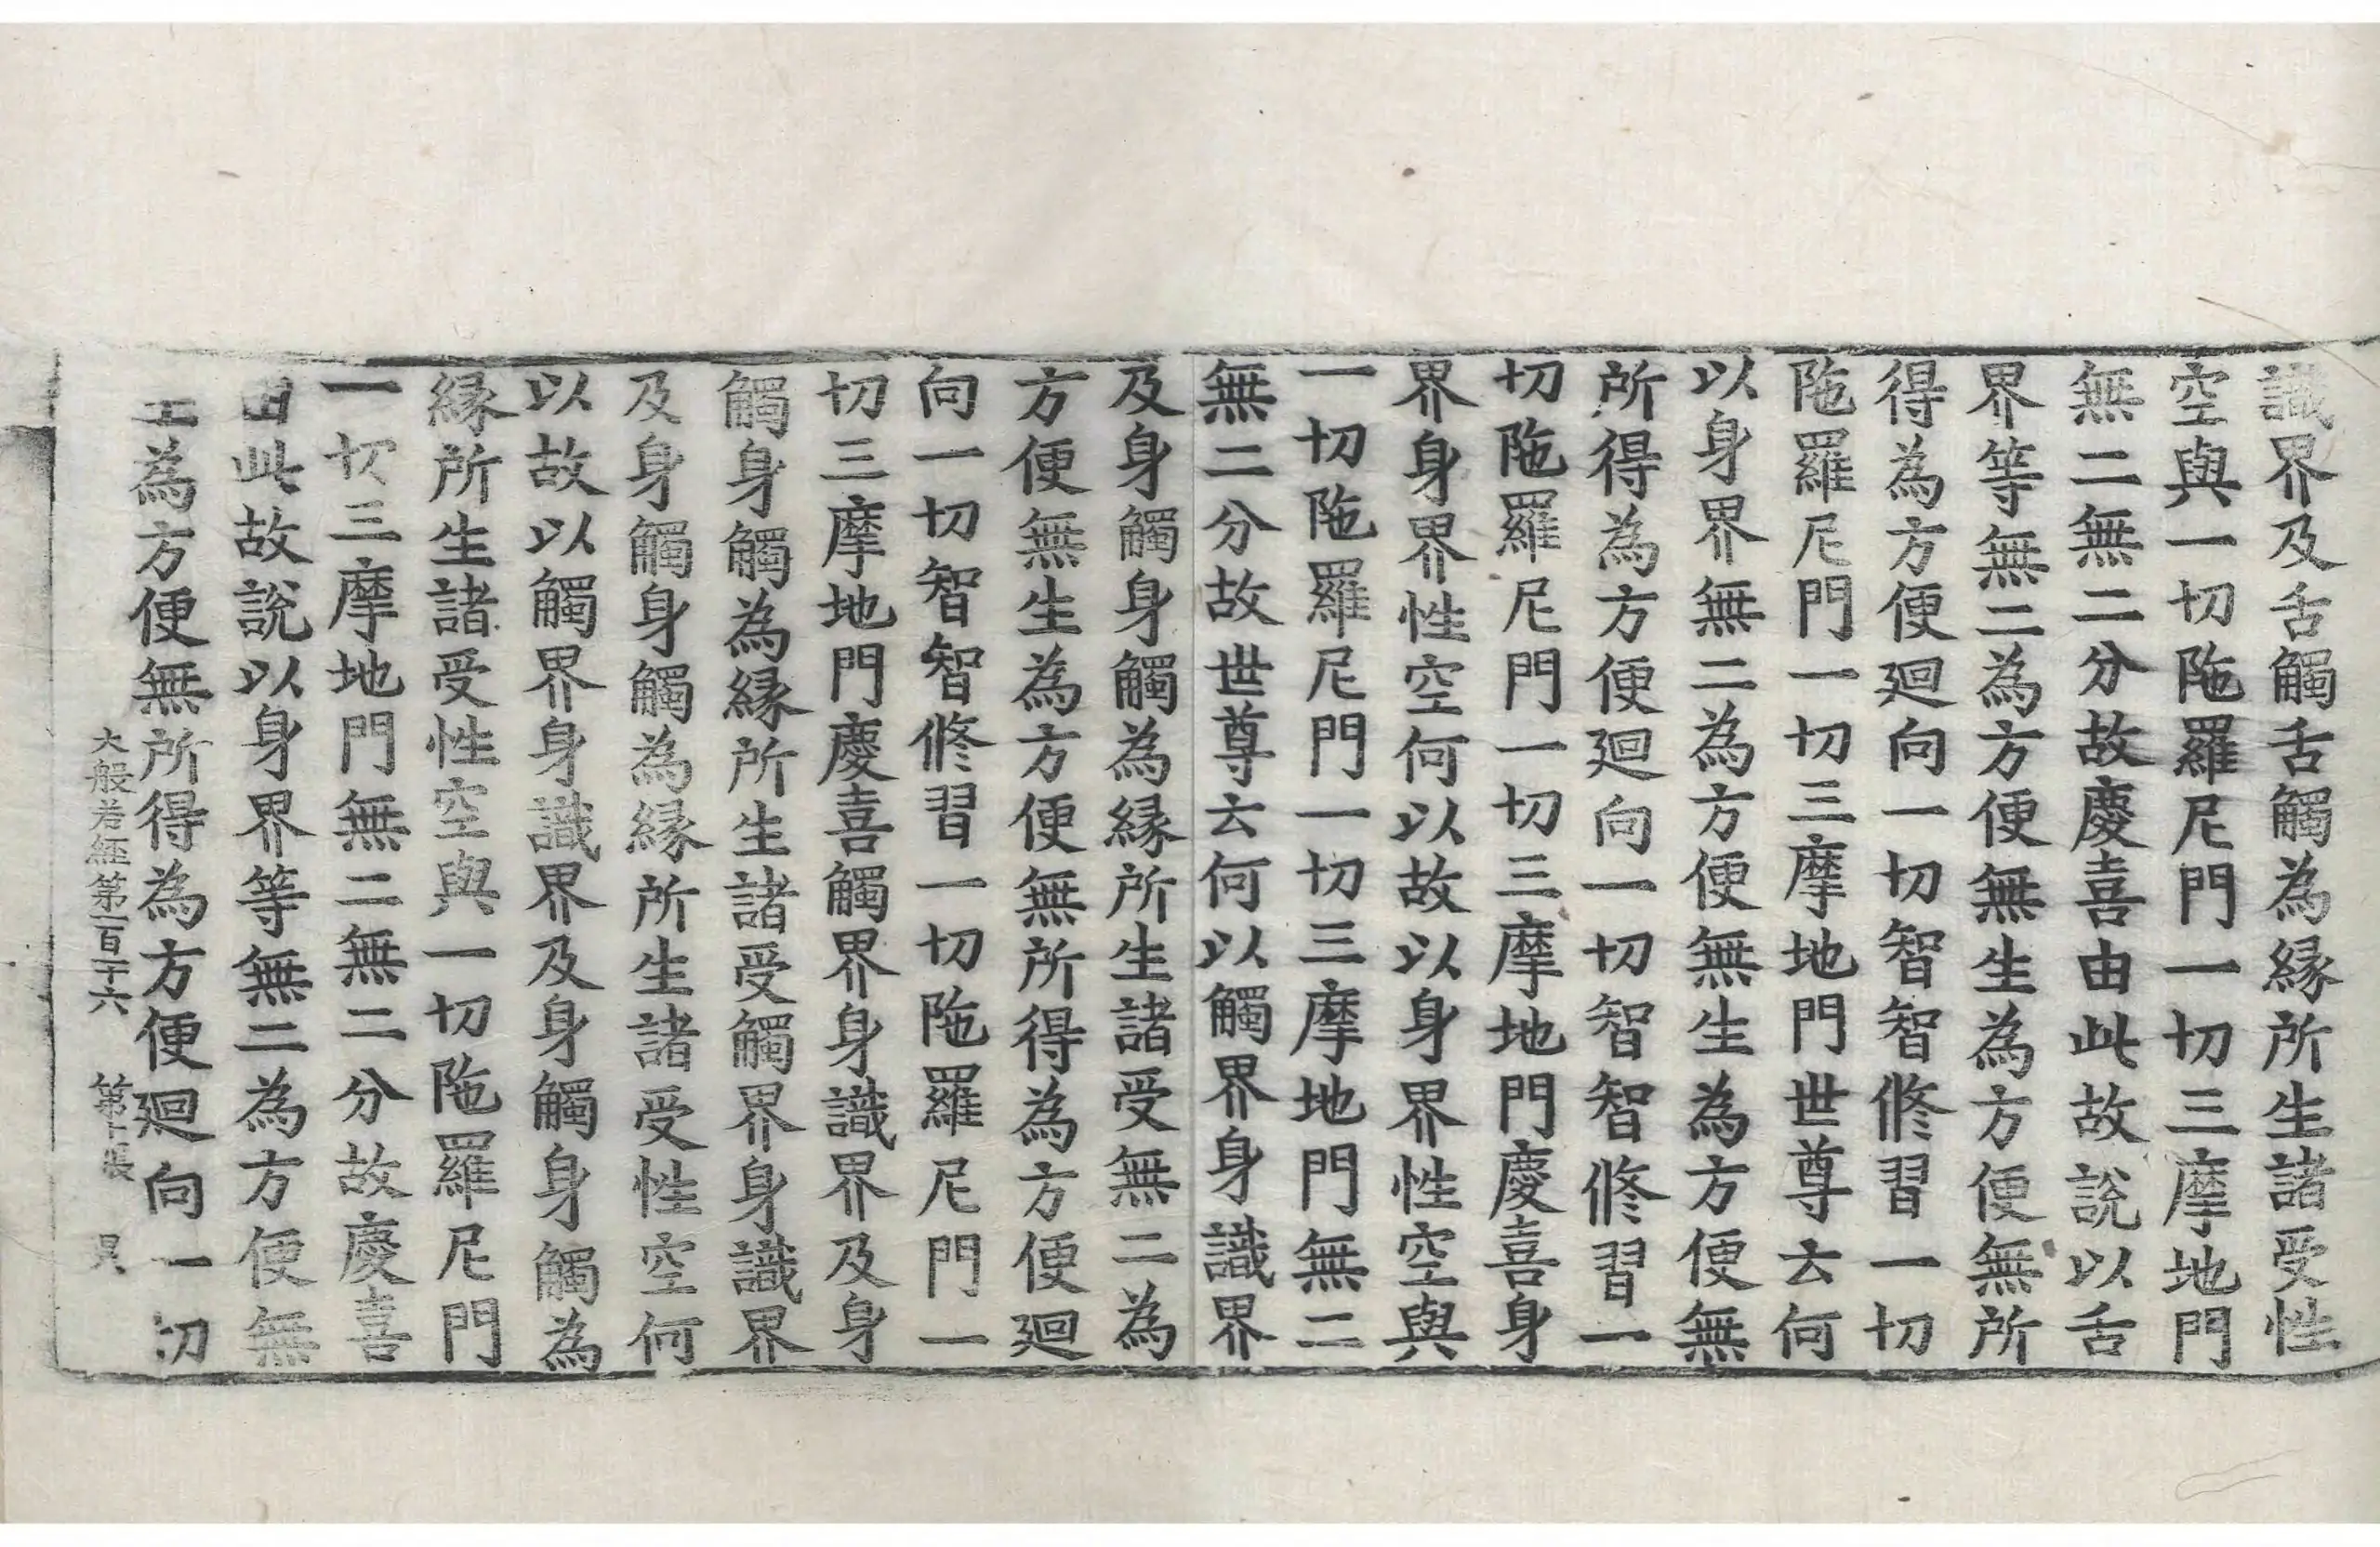 識界及舌觸舌觸為緣所生諸受性
空與一切陁羅尼門一切三摩地門
無二無二分故慶喜由此故說以舌
界等無二為方便無生為方便無所
得為方便廻向一切智智修習一切
陁羅尼門一切三摩地門世尊云何
以身界無二為方便無生為方便無
所得為方便廻向一切智智修習一
切陁羅尼門一切三摩地門慶喜身
界身界性空何以故以身界性空與
一切陁羅尼門一切三摩地門無二
無二分故世尊云何以觸界身識界
及身觸身觸為緣所生諸受無二為
方便無生為方便無所得為方便廻
向一切智智修習一切陁羅尼門一
切三摩地門慶喜觸界身識界及身
觸身觸為緣所生諸受觸界身識界
及身觸身觸為緣所生諸受性空何
以故以觸界身識界及身觸身觸為
緣所生諸受性空與一切陁羅尼門
一切三摩地門無二無二分故慶喜
由此故說以身界等無二為方便無
生為方便無所得為方便廻向一切
大般若經第一百二十六 第十張 昃